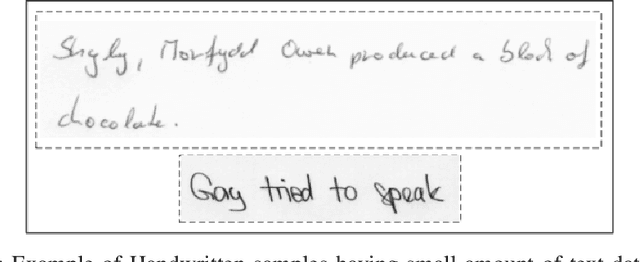 Shyly, Morfydd Owen produced a block of
chocolate.
Gay tried to speak
Example of Handwritten samples having small amount of text